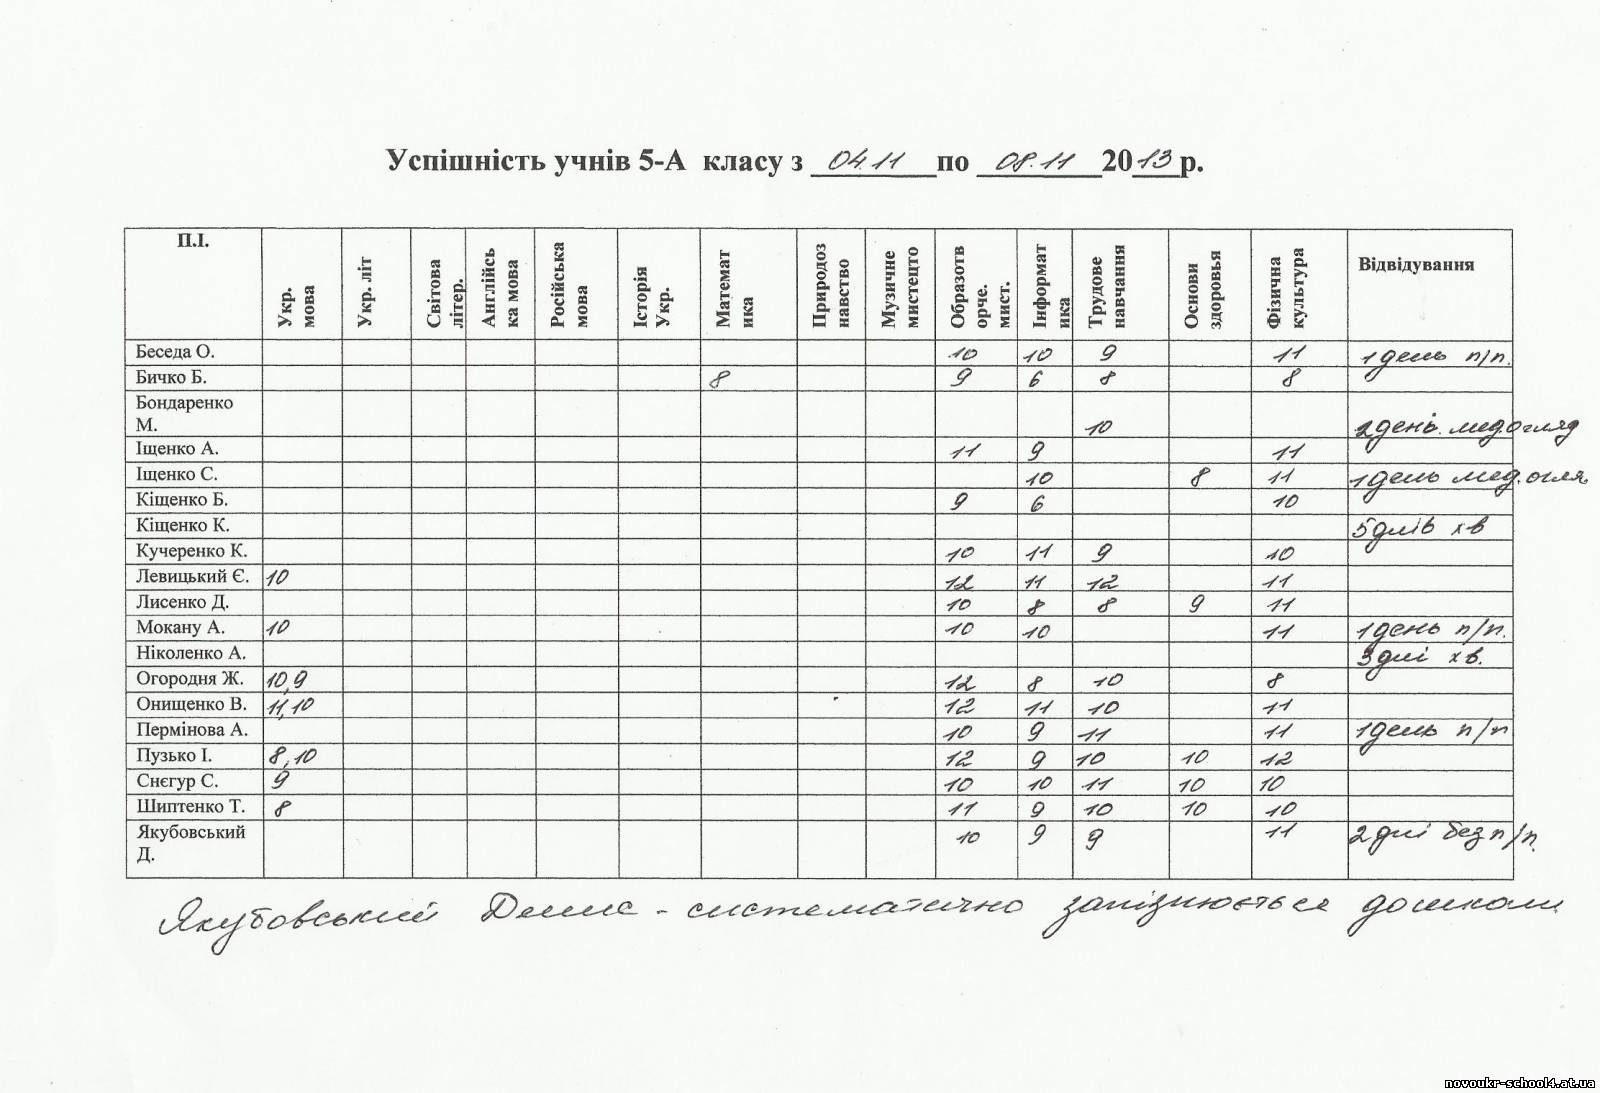 Успішність учнів 5-А класу з 04.11 по 08.11 2013 р.
П.І. Укр. мова Укр. літ Світова літер. Англійсь ка мова Російська мова Історія Укр. Математ ика Природоз навство Музичне мистецто Образотв орче. мист. Інформат ика Трудове навчання Основи здоровья Фізична культура Відвідування
Беседа О. 10 10 9 11 1 день п/п.
Бичко Б. 8 9 6 8 8
Бондаренко М. 10 2 день. мед.огляд
Іщенко А. 11 9 11
Іщенко С. 10 8 11 1 день мед.огля
Кіщенко Б. 9 6 10
Кіщенко К. 5 днів хв
Кучеренко К. 10 11 9 10
Левицький Є. 10 12 11 12 11
Лисенко Д. 10 8 8 9 11
Мокану А. 10 10 10 11 1 день п/п.
Ніколенко А. 3 дні хв.
Огородня Ж. 10,9 12 8 10 8
Онищенко В. 11,10 12 11 10 11
Пермінова А. 10 9 11 11 1 день п/п
Пузько І. 8,10 12 9 10 10 12
Снєгур С. 9 10 10 11 10 10
Шиптенко Т. 8 11 9 10 10 10
Якубовський Д. 10 9 9 11 2 дні без п/п.
Якубовський Денис - систематично запізнюється до школи
novoukr-school4.at.ua